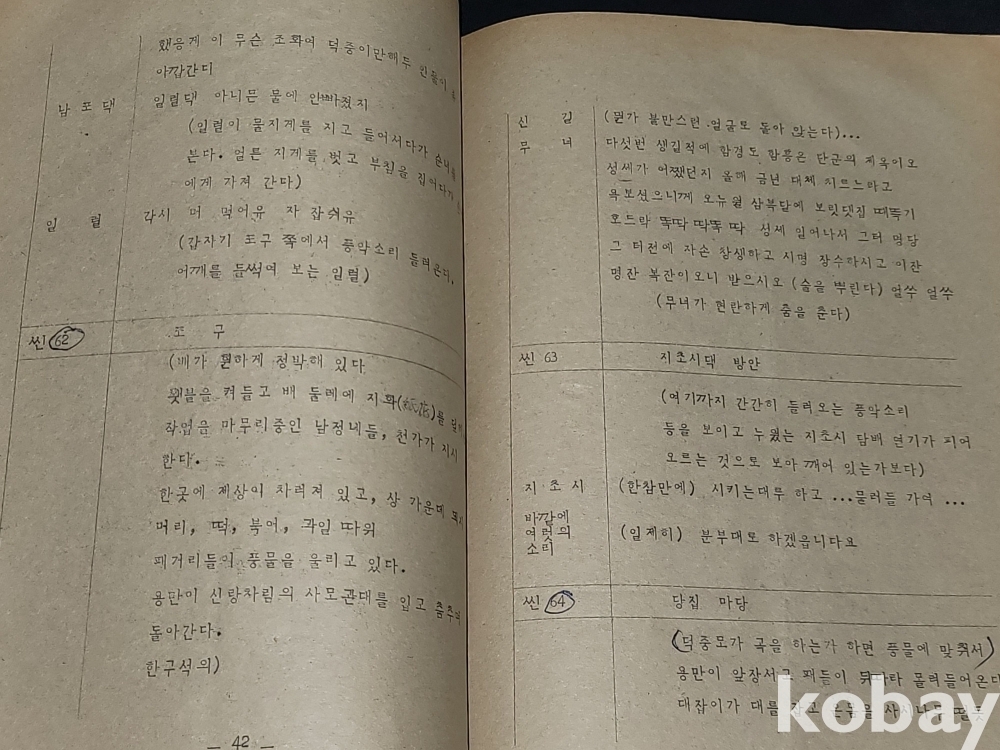 했응게 이 무슨 조화여 덕중이만해두 인물이
아깝간디
남포댁 일렬댁 아니믄 물에 안빠졌지
(일렬이 물지게를 지고 들어서다가
본다. 얼른 지게를 벗고 부침을 집어다가
에게 가져 간다)
일렬 각시 머 먹어유 자 잡숴유
(갑자기 포구 쪽에서 풍악소리 들려온다.
어깨를 들썩여 보는 일렬)
씬 62 포구
(배가 훤하게 정박해 있다
횃불을 켜들고 배 둘레에 지화(紙花)를
작업을 마무리중인 남정네들, 천가가 지시
한다.
한곳에 제상이 차려져 있고, 상 가운데
머리, 떡, 북어, 과일 따위
패거리들이 풍물을 울리고 있다.
용만이 신랑차림의 사모관대를 입고 춤추며
돌아간다.
한구석의)
- 42 -
신길 (뭔가 불만스런 얼굴로 돌아 앉는다)...
무녀 다섯번 생길적에 함경도 함흥은 단군의 제옥이오
성세가 어쨌던지 올해 금년 대체 지르느라고
욕보셨으니께 오뉴월 삼복달에 보릿댓집 때뚝기
호드락 똑딱 딱똑 딱 성세 일어나서 그터 명당
그 터전에 자손 창생하고 시명 장수하시고 이잔
명잔 복잔이오니 받으시오 (술을 뿌린다) 얼쑤 얼쑤
(무녀가 현란하게 춤을 춘다)
씬 63 지초시댁 방안
(여기까지 간간히 들려오는 풍악소리
등을 보이고 누웠는 지초시 담배 연기가 피어
오르는 것으로 보아 깨어 있는가보다)
지초시 (한참만에) 시키는대루 하고 ...물러들 가여 ...
바깥에
여럿의 (일제히) 분부대로 하겠읍니다요
소리
씬 64 당집 마당
(덕중모가 곡을 하는가 하면 풍물에 맞춰서)
용만이 앞장서고 패들이 뒤따라 몰려들어온다
대잡이가 대를 잡고 온몸을 사시나무 떨듯
kobay